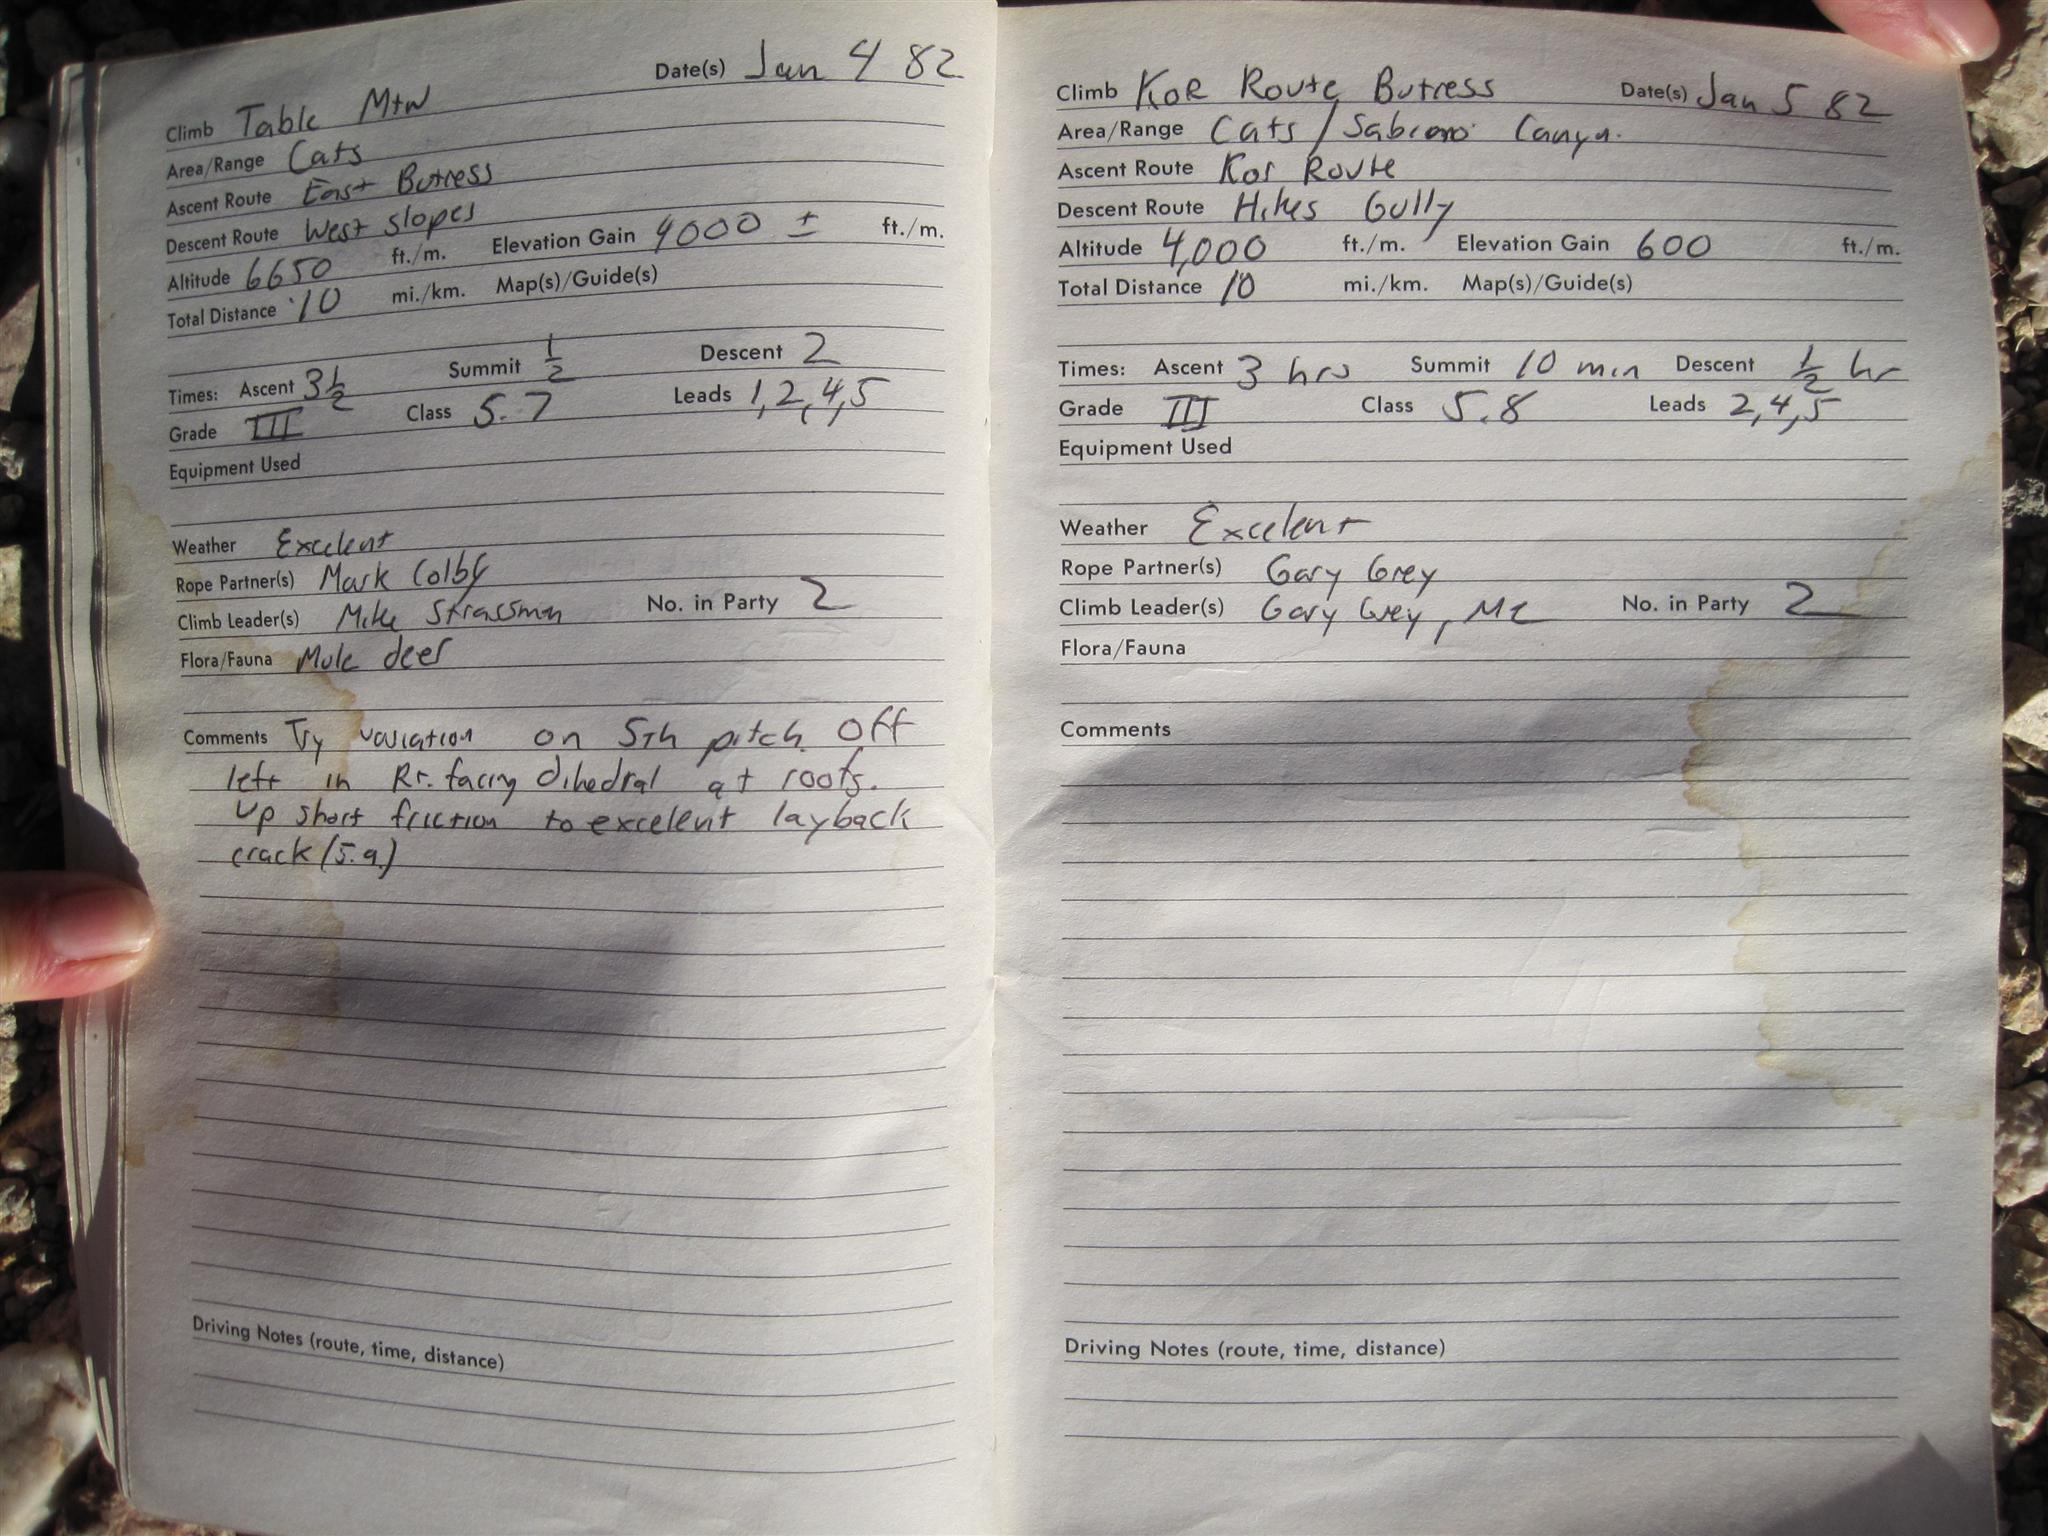 Date(s) Jan 4 82
Climb Table Mtn
Area/Range Cats
Ascent Route East Butress
Descent Route West slopes
Altitude 6650 ft./m. Elevation Gain 4000 ± ft./m.
Total Distance 10 mi./km. Map(s)/Guide(s)
Times: Ascent 3½ Summit ½ Descent 2
Grade III Class 5.7 Leads 1,2,4,5
Equipment Used
Weather Excelent
Rope Partner(s) Mark Colby
Climb Leader(s) Mike Strassman No. in Party 2
Flora/Fauna Mule deer
Comments Try variation on 5th pitch. Off
left in Rt. facing dihedral at roofs.
Up short friction to excelent layback
crack (5.9.)
Driving Notes (route, time, distance)
Climb Kor Route Butress Date(s) Jan 5 82
Area/Range Cats /
Ascent Route Kor Route
Descent Route Gully
Altitude 4,000 ft./m. Elevation Gain 600 ft./m.
Total Distance 10 mi./km. Map(s)/Guide(s)
Times: Ascent 3 hrs Summit 10 min Descent ½ hr
Grade III Class 5.8 Leads 2,4,5
Equipment Used
Weather Excelent
Rope Partner(s) Gary Grey
Climb Leader(s) Gary Grey, No. in Party 2
Flora/Fauna
Comments
Driving Notes (route, time, distance)